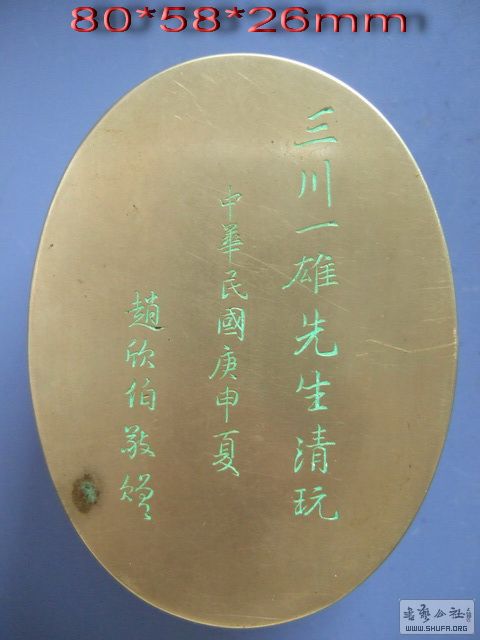 80*58*26mm
三川一雄先生清玩
中華民國庚申夏
趙欣伯敬贈
书艺公社
WWW.SHUFA.ORG